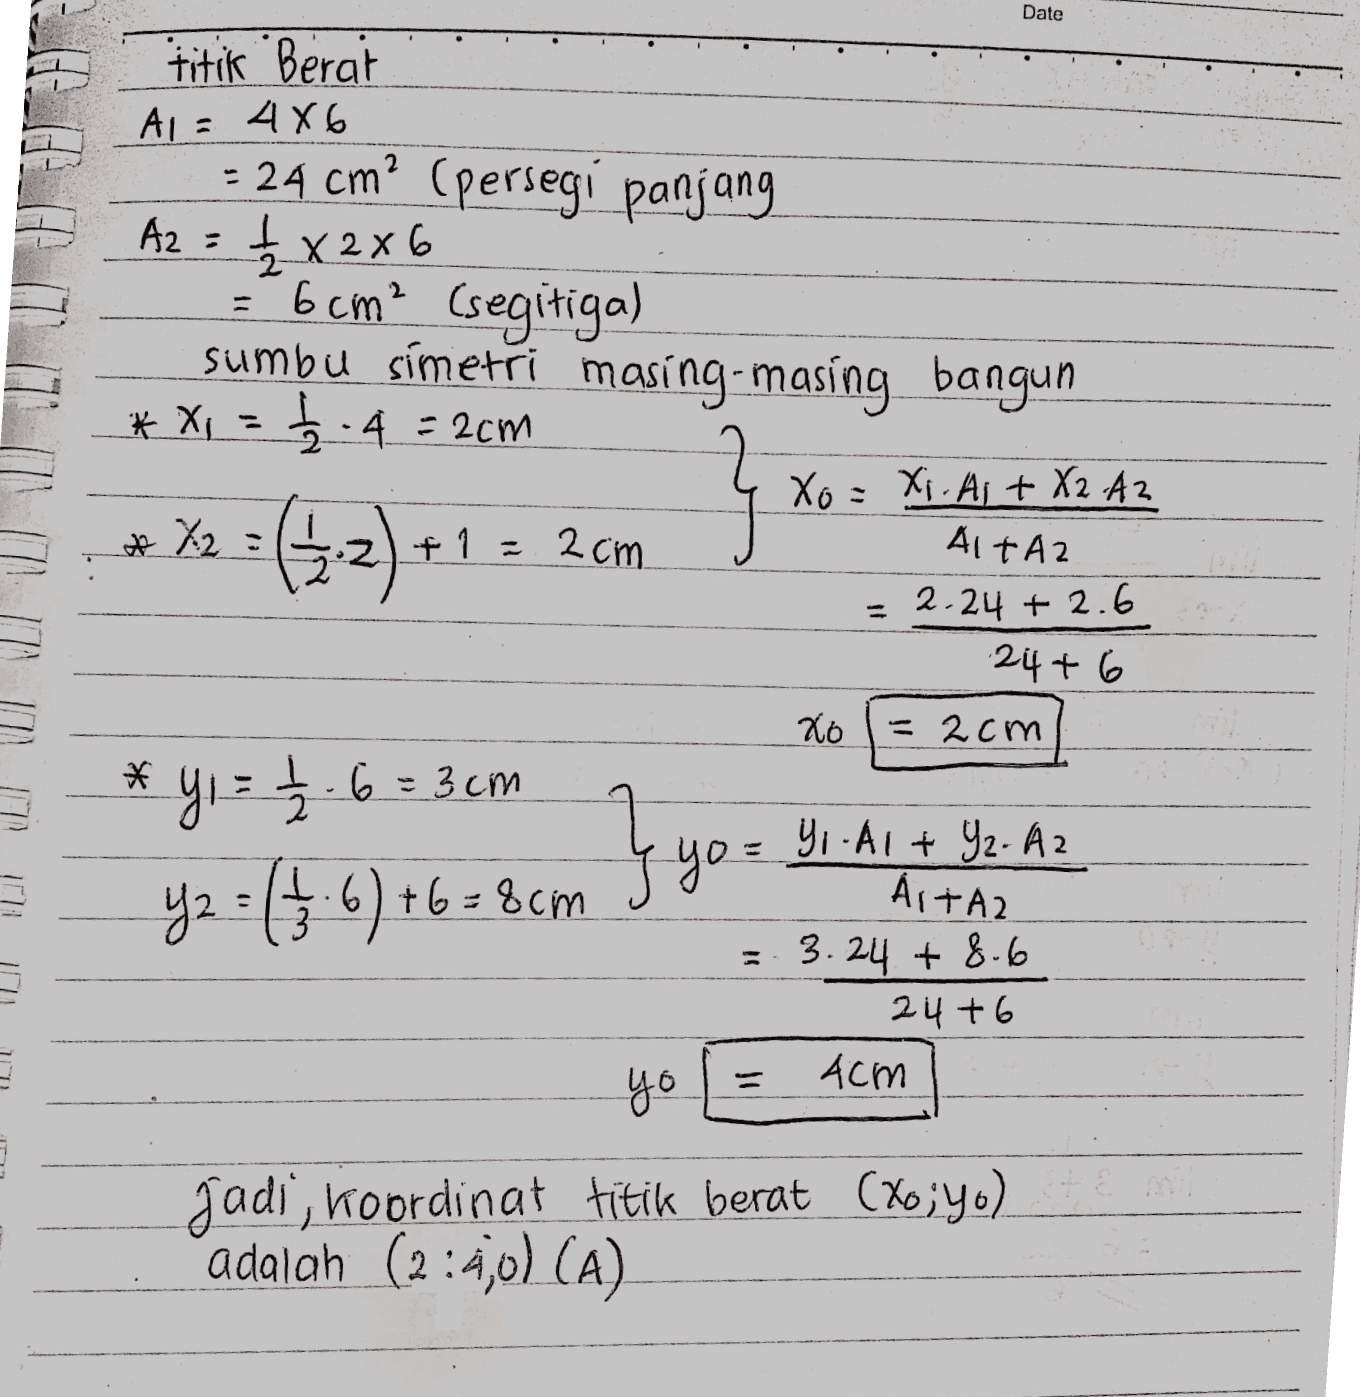 Date
titik Berat
A1 = 4 x 6
= 24 cm² (persegi panjang
A2 = 1/2 x 2 x 6
= 6 cm² (segitiga)
sumbu simetri masing-masing bangun
* X1 = 1/2 . 4 = 2cm
* X2 = (1/2 . 2) + 1 = 2 cm
} X0 = X1 . A1 + X2 . A2 / A1 + A2
= 2.24 + 2.6 / 24 + 6
x0 = 2 cm
* y1 = 1/2 . 6 = 3 cm
y2 = (1/3 . 6) + 6 = 8 cm
} y0 = y1 . A1 + y2 . A2 / A1 + A2
= 3.24 + 8.6 / 24 + 6
y0 = 4cm
Jadi, koordinat titik berat (x0;y0)
adalah (2 : 4,0) (A)